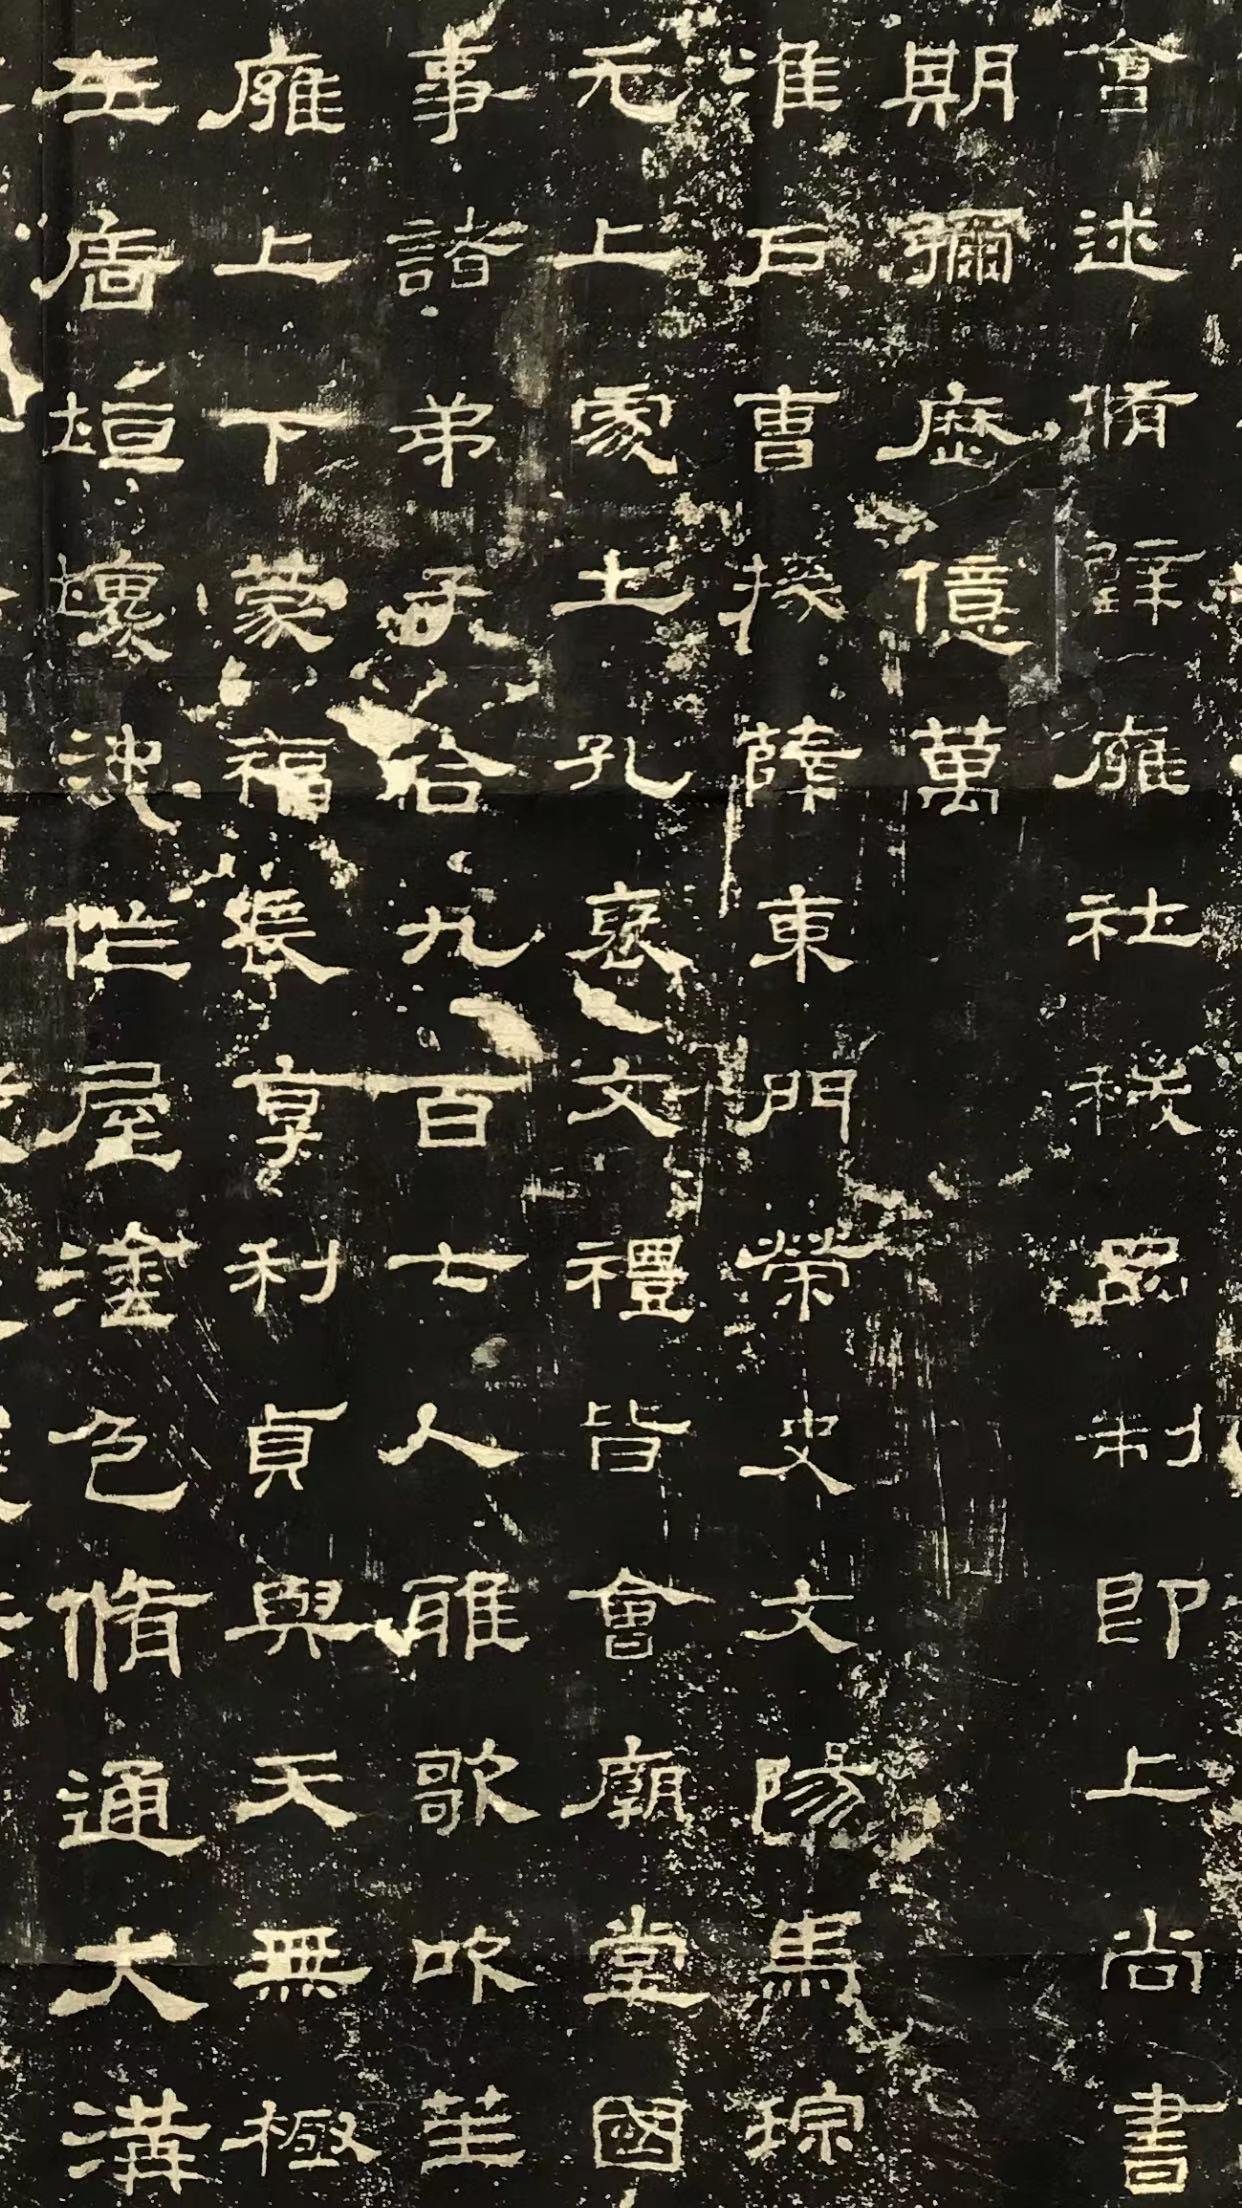 會述脩辟雍社稷品制即上尚書
期彌歷億萬
淮戶曹掾薛東門榮史文陽馬琮
元上處土孔褒文禮皆會廟堂國
事諸弟子合九百七人雅歌吹笙
雍上下蒙福長享利貞與天無極
左廧垣壞決作屋塗色脩通大溝